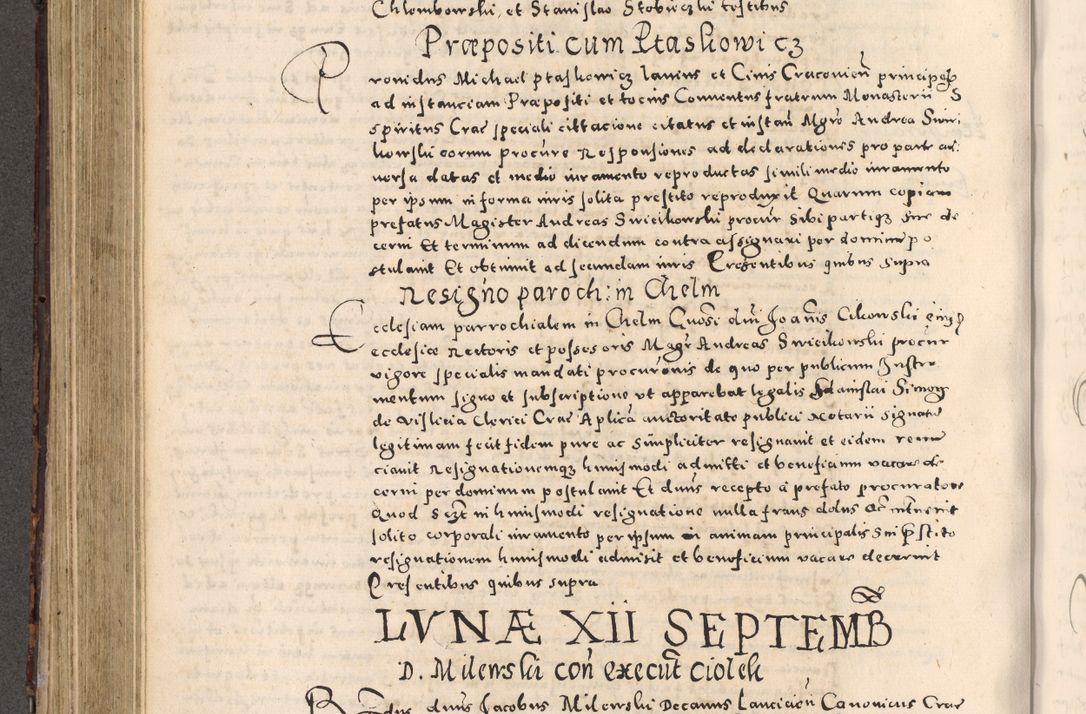 Chlembowski, et Stanislao Stobieczki testibus
Præpositi cum Ptaskowicz
Providus Michael Ptaskowicz lanius et Civis Cracovien principalis
ad instanciam Præpositi et tocius Conventus fratrum Monasterii S
spiritus Crac speciali cittacione citatus et instan Mgro Andrea Swie
kowski eorum procure Responsiones ad declarationes pro parte ad
versa datas et medio iuramento reproductas simili medio iuramento
per ipsum in forma iuris solita prestito reproduxit Quarum copiam
prefatus Magister Andreas Swieikowski procur sibi partiqz sue de
cerni Et terminum ad dicendum contra assignari per dominum po
stulavit Et obtinuit ad secundam iuris Presentibus quibus supra
Resigno paroch: in Chelm
Ecclesiam parrochialem in Chelm Quosi dni Joannis Cikowski
ecclesiæ Rectoris et possessoris Magr Andreas Swieikowski procur
vigore specialis mandati procuronis de quo per publicum Instru
mentum signo et subscriptione ut apparebat legalis Stanislai Simog
de Vislicia Clerici Crac Aplica auctoritate publici Notarii signatu
legitimam fecit fidem pure ac simpliciter resignavit et eidem renun
ciavit Resignationemqz huiusmodi admitti et beneficium vacare de
cerni per dominum postulavit Et dnus recepto a prefato procuratore
Quod in huiusmodi resignatione nulla fraus dolus ac intervenit
solito corporali iuramento per ipsum in animam principalis sui pstito
resignationem huiusmodi admisit et beneficium vacare decrevit
Presentibus quibus supra
LVNÆ XII SEPTEMB
D. Milewski con execut Ciolek
Rndus dnus Jacobus Milewski Decanus Lancicien Canonicus Crac